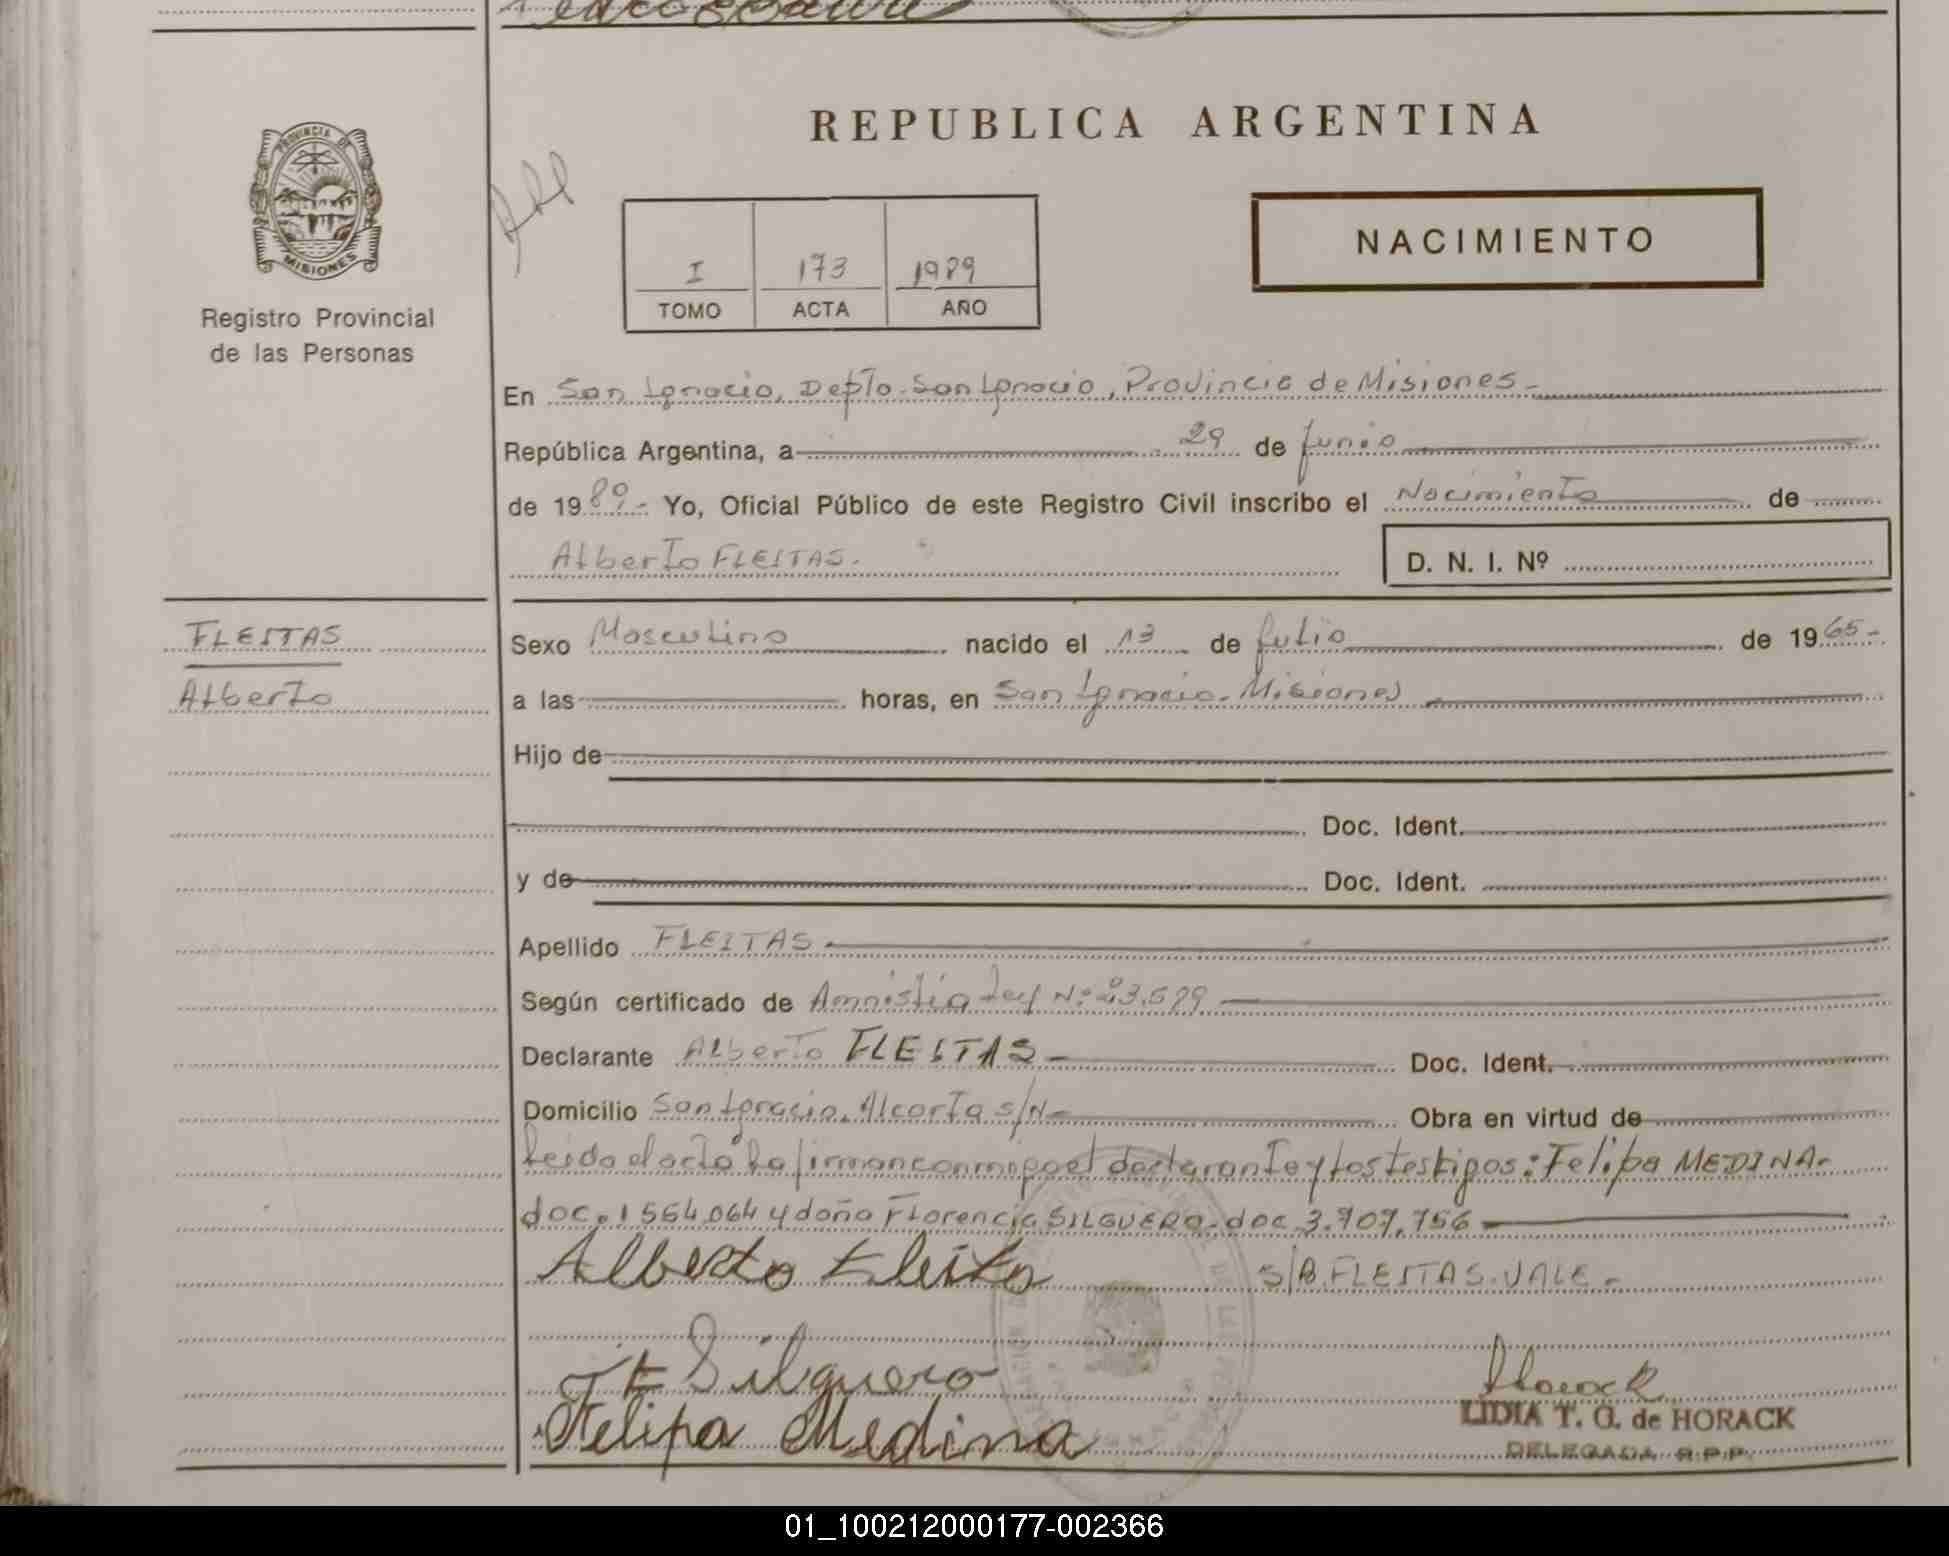 PROVINCIA DE
MISIONES
Registro Provincial
de las Personas
REPUBLICA ARGENTINA
I 173 1989
TOMO ACTA AÑO
NACIMIENTO
En San Ignacio, Depto. San Ignacio, Provincia de Misiones.
República Argentina, a 29 de junio
de 1989.- Yo, Oficial Público de este Registro Civil inscribo el Nacimiento de
Alberto FLEITAS.
D. N. I. Nº
FLEITAS
Alberto
Sexo Masculino nacido el 13 de Julio de 1965-
a las horas, en San Ignacio. Misiones
Hijo de
Doc. Ident.
y de Doc. Ident.
Apellido FLEITAS
Según certificado de Amnistía Ley Nº 23.
Declarante Alberto FLEITAS- Doc. Ident.
Domicilio San Ignacio. Alcorta s/N- Obra en virtud de
Leida el acta la firman conmigo el declarante y los testigos: Felipa MEDINA-
doc. 1564.064 y doña Florencia SILGUERO- doc 3.907.756
Alberto Fleita S/B. FLEITAS. VALE.
Silguero
Felipa Medina
Horack
LIDIA T. G. de HORACK
DELEGADA R.P.P.
01_100212000177-002366